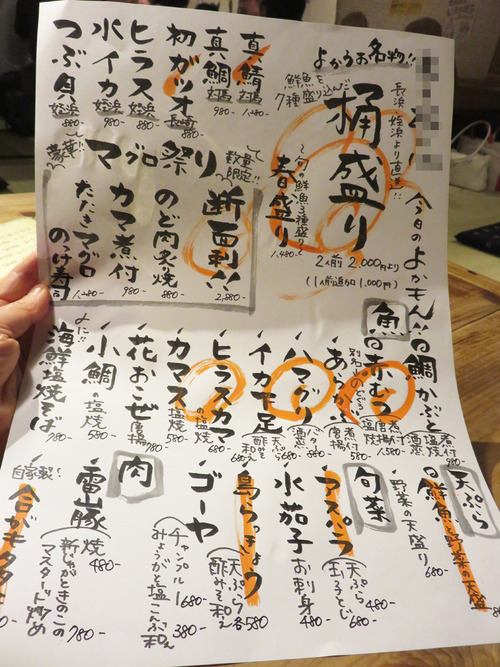 よかろお名物!!
長浜、姪浜より直送!!
鮮魚を
7種盛り込んだ
桶盛り
2人前 2,000円より
(1人前追加 1,000円)
旬の鮮魚3種盛り
春盛り
1,480-
真鯖 対馬 1,280-
真鯛 対馬 980-
初ガツオ 長崎 880-
ヒラス 姪浜 880-
水イカ 姪浜 980-
つぶ貝 姪浜 880-
豪華!!
マグロ祭り
数量
限定!!
断面刺!! 2,880-
のど肉炙り焼 880-
カマ煮付 980-
たたきマグロ
のっけ寿司 1,280-
今日のよかもん!!
魚
鯛かぶと 煮付 塩焼 酒蒸 980-
赤むつ 煮付 唐揚 塩焼 1,580-
別名のどぐろ
あらかぶ 煮付 唐揚 880-
ハマグリ バター 酒蒸 680-
イカゲソ 天ぷら 酢みそ和え 680-
ヒラスカマの塩焼 680-
カマス塩焼 780-
花おこぜ唐揚 780-
小鯛の塩焼 580-
海鮮塩焼そば 780-
天ぷら
鮮魚と野菜の天盛
野菜の天盛り 680-
旬菜
アスパラ 天ぷら 玉子とじ 480-
水茄子 お刺身 480-
島らっきょう 天ぷら 酢みそ和え 各580
ゴーヤ
チャンプルー 680-
みょうがと塩こんぶ和え 380-
肉
雷山豚
焼 480-
新じゃがときのこの
マスタード炒め 780-
自家製!
合がもタタキ